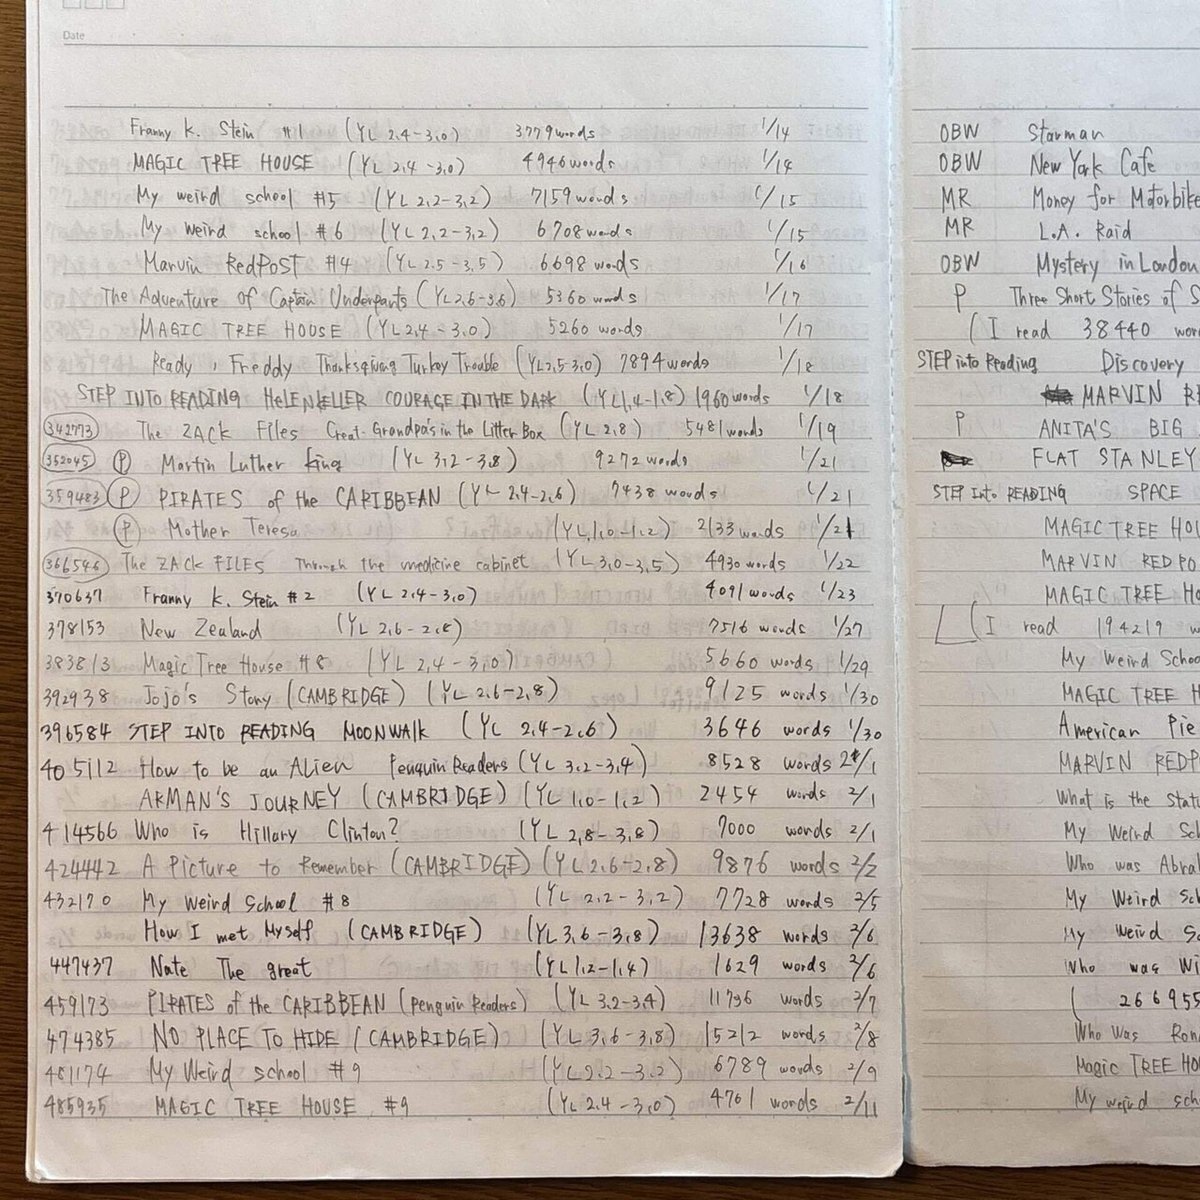 Date
Franny K. Stein #1 (YL 2,4-3,0) 3779 words 1/14
MAGIC TREE HOUSE (YL 2,4-3,0) 4946 words 1/14
My weird school #5 (YL 2,2-3,2) 7159 words 1/15
My weird school #6 (YL 2,2-3,2) 6708 words 1/15
Marvin RedPOST #4 (YL 2,5-3,5) 6698 words 1/16
The Adventure of Captain Underpants (YL 2,6-3,6) 5360 words 1/17
MAGIC TREE HOUSE (YL 2,4-3,0) 5260 words 1/17
Ready, Freddy Thanksgiving Turkey Trouble (YL 2,5-3,0) 7894 words 1/18
STEP INTO READING HELEN KELLER COURAGE IN THE DARK (YL 1,4-1,8) 1960 words 1/18
342773 The ZACK Files Great-Grandpa's in the Litter Box (YL 2,8) 5481 words 1/19
352045 P Martin Luther King (YL 3,2-3,8) 9272 words 1/21
359483 P PIRATES of the CARIBBEAN (YL 2,4-2,6) 7438 words 1/21
P Mother Teresa (YL 1,0-1,2) 2133 words 1/21
366546 The ZACK FILES Through the medicine cabinet (YL 3,0-3,5) 4930 words 1/22
370637 Franny K. Stein #2 (YL 2,4-3,0) 4091 words 1/23
378153 New Zealand (YL 2,6-2,8) 7516 words 1/27
383813 Magic Tree House #8 (YL 2,4-3,0) 5660 words 1/29
392938 Jojo's Story (CAMBRIDGE) (YL 2,6-2,8) 9125 words 1/30
396584 STEP INTO READING MOONWALK (YL 2,4-2,6) 3646 words 1/30
405112 How to be an Alien Penguin Readers (YL 3,2-3,4) 8528 words 2/1
ARMAN'S JOURNEY (CAMBRIDGE) (YL 1,0-1,2) 2454 words 2/1
414566 Who is Hillary Clinton? (YL 2,8-3,8) 7000 words 2/1
424442 A Picture to Remember (CAMBRIDGE) (YL 2,6-2,8) 9876 words 2/2
432170 My Weird School #8 (YL 2,2-3,2) 7728 words 2/5
How I met Myself (CAMBRIDGE) (YL 3,6-3,8) 13638 words 2/6
447437 Nate The great (YL 1,2-1,4) 1629 words 2/6
459173 PIRATES of the CARIBBEAN (Penguin Readers) (YL 3,2-3,4) 11736 words 2/7
474385 NO PLACE TO HIDE (CAMBRIDGE) (YL 3,6-3,8) 15212 words 2/8
481174 My Weird school #9 (YL 2,2-3,2) 6789 words 2/9
485935 MAGIC TREE HOUSE #9 (YL 2,4-3,0) 4761 words 2/11
OBW Starman
OBW New York Cafe
MR Money for Motorbike
MR L.A. Raid
OBW Mystery in London
P Three Short Stories of S
(I read 38440 wor
STEP into Reading Discovery
MARVIN RE
P ANITA'S BIG
FLAT STANLEY
STEP Into READING SPACE
MAGIC TREE HOU
MARVIN REDPO
MAGIC TREE HO
(I read 194219 w
My Weird Schoo
MAGIC TREE H
American Pie
MARVIN REDP
What is the Statu
My Weird Sch
Who was Abra
My Weird Sch
My weird Sc
Who was Wi
( 266955
Who Was Ron
Magic TREE HOU
My weird sch